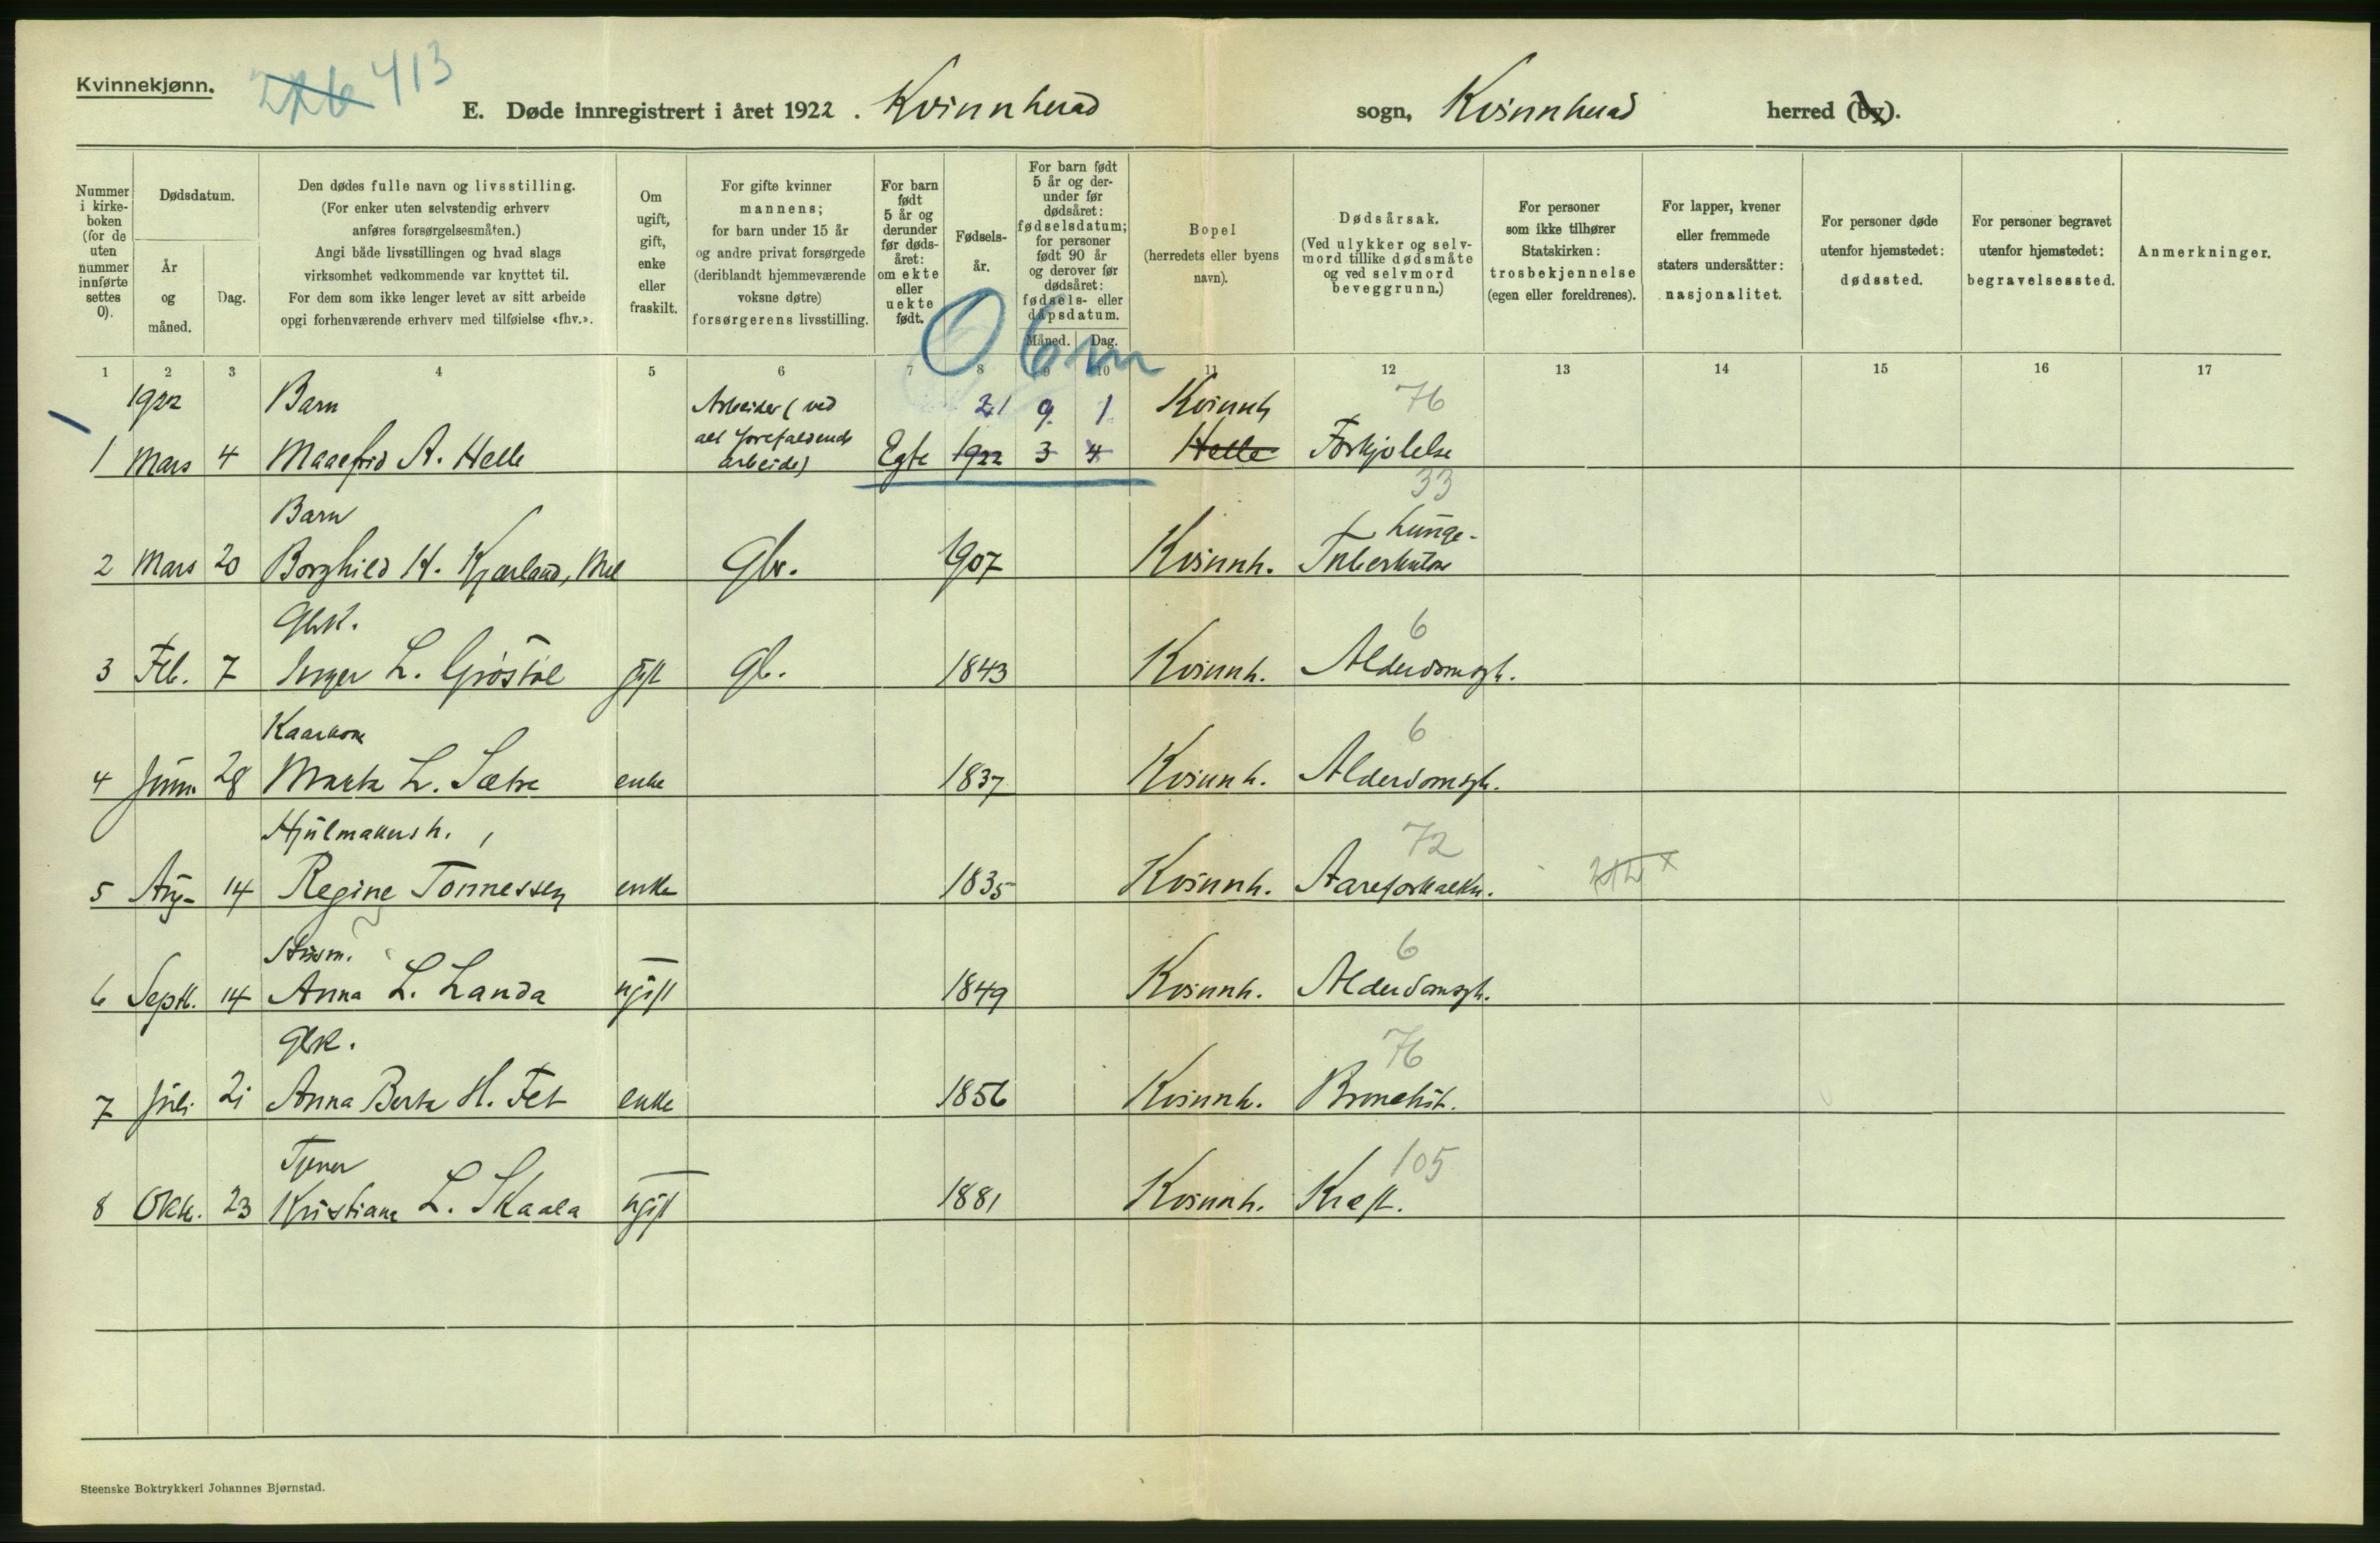 Kvinnekjønn. 216 413
E. Døde innregistrert i året 1922. Kvinnherad sogn, Kvinnherad herred (by).
Nummer i kirke-boken (for de uten nummer innførte settes 0).
Dødsdatum.
År og måned.
Dag.
Den dødes fulle navn og livsstilling.
(For enker uten selvstendig erhverv
anføres forsørgelsesmåten.)
Angi både livsstillingen og hvad slags
virksomhet vedkommende var knyttet til.
For dem som ikke lenger levet av sitt arbeide
opgi forhenværende erhverv med tilføielse «fhv.».
Om ugift, gift, enke eller fraskilt.
For gifte kvinner
mannens;
for barn under 15 år
og andre privat forsørgede
(deriblandt hjemmeværende
voksne døtre)
forsørgerens livsstilling.
For barn født 5 år og derunder før døds-året: om ekte eller uekte født.
Fødsels-år.
For barn født 5 år og der-under før dødsåret: fødselsdatum; for personer født 90 år og derover før dødsåret: fødsels- eller dåpsdatum.
Måned. Dag.
Bopel
(herredets eller byens
navn).
Dødsårsak.
(Ved ulykker og selv-
mord tillike dødsmåte
og ved selvmord
beveggrunn.)
For personer
som ikke tilhører
Statskirken:
trosbekjennelse
(egen eller foreldrenes).
For lapper, kvener
eller fremmede
staters undersåtter:
nasjonalitet.
For personer døde
utenfor hjemstedet:
dødssted.
For personer begravet
utenfor hjemstedet:
begravelsessted.
Anmerkninger.
0 6 m
1 2 3 4 5 6 7 8 9 10 11 12 13 14 15 16 17
1922 Barn Arbeider (ved 21 9 1 Kvinnh 76
1 Mars 4 A. Helle alt forefaldende arbeide) Egte 1922 3 4 Helle Forkjølelse
33
Barn Lunge-
2 Mars 20 Borghild H. Kjærland, Mel Gbr. 1907 Kvinnh. Tuberkulose
Gbk. 6
3 Feb. 7 Inger L. gift Gb. 1843 Kvinnh. Alderdomsh.
Kaarkone 6
4 Juni 28 Marta L. Sætre enke 1837 Kvinnh. Alderdomsh.
Hjulmakersh. 72
5 Aug. 14 Regine Tonnessen enke 1835 Kvinnh. Aareforkalkn.
6
6 Septb. 14 Anna L. Landa ugift 1849 Kvinnh. Alderdomsh.
Gbk. 76
7 Juli 21 Anna Berta H. Fet enke 1856 Kvinnh. Bronchit.
Tjener 105
8 Oktb. 23 Kristiane L. Skaala ugift 1881 Kvinnh. Kræft.
Steenske Boktrykkeri Johannes Bjørnstad.